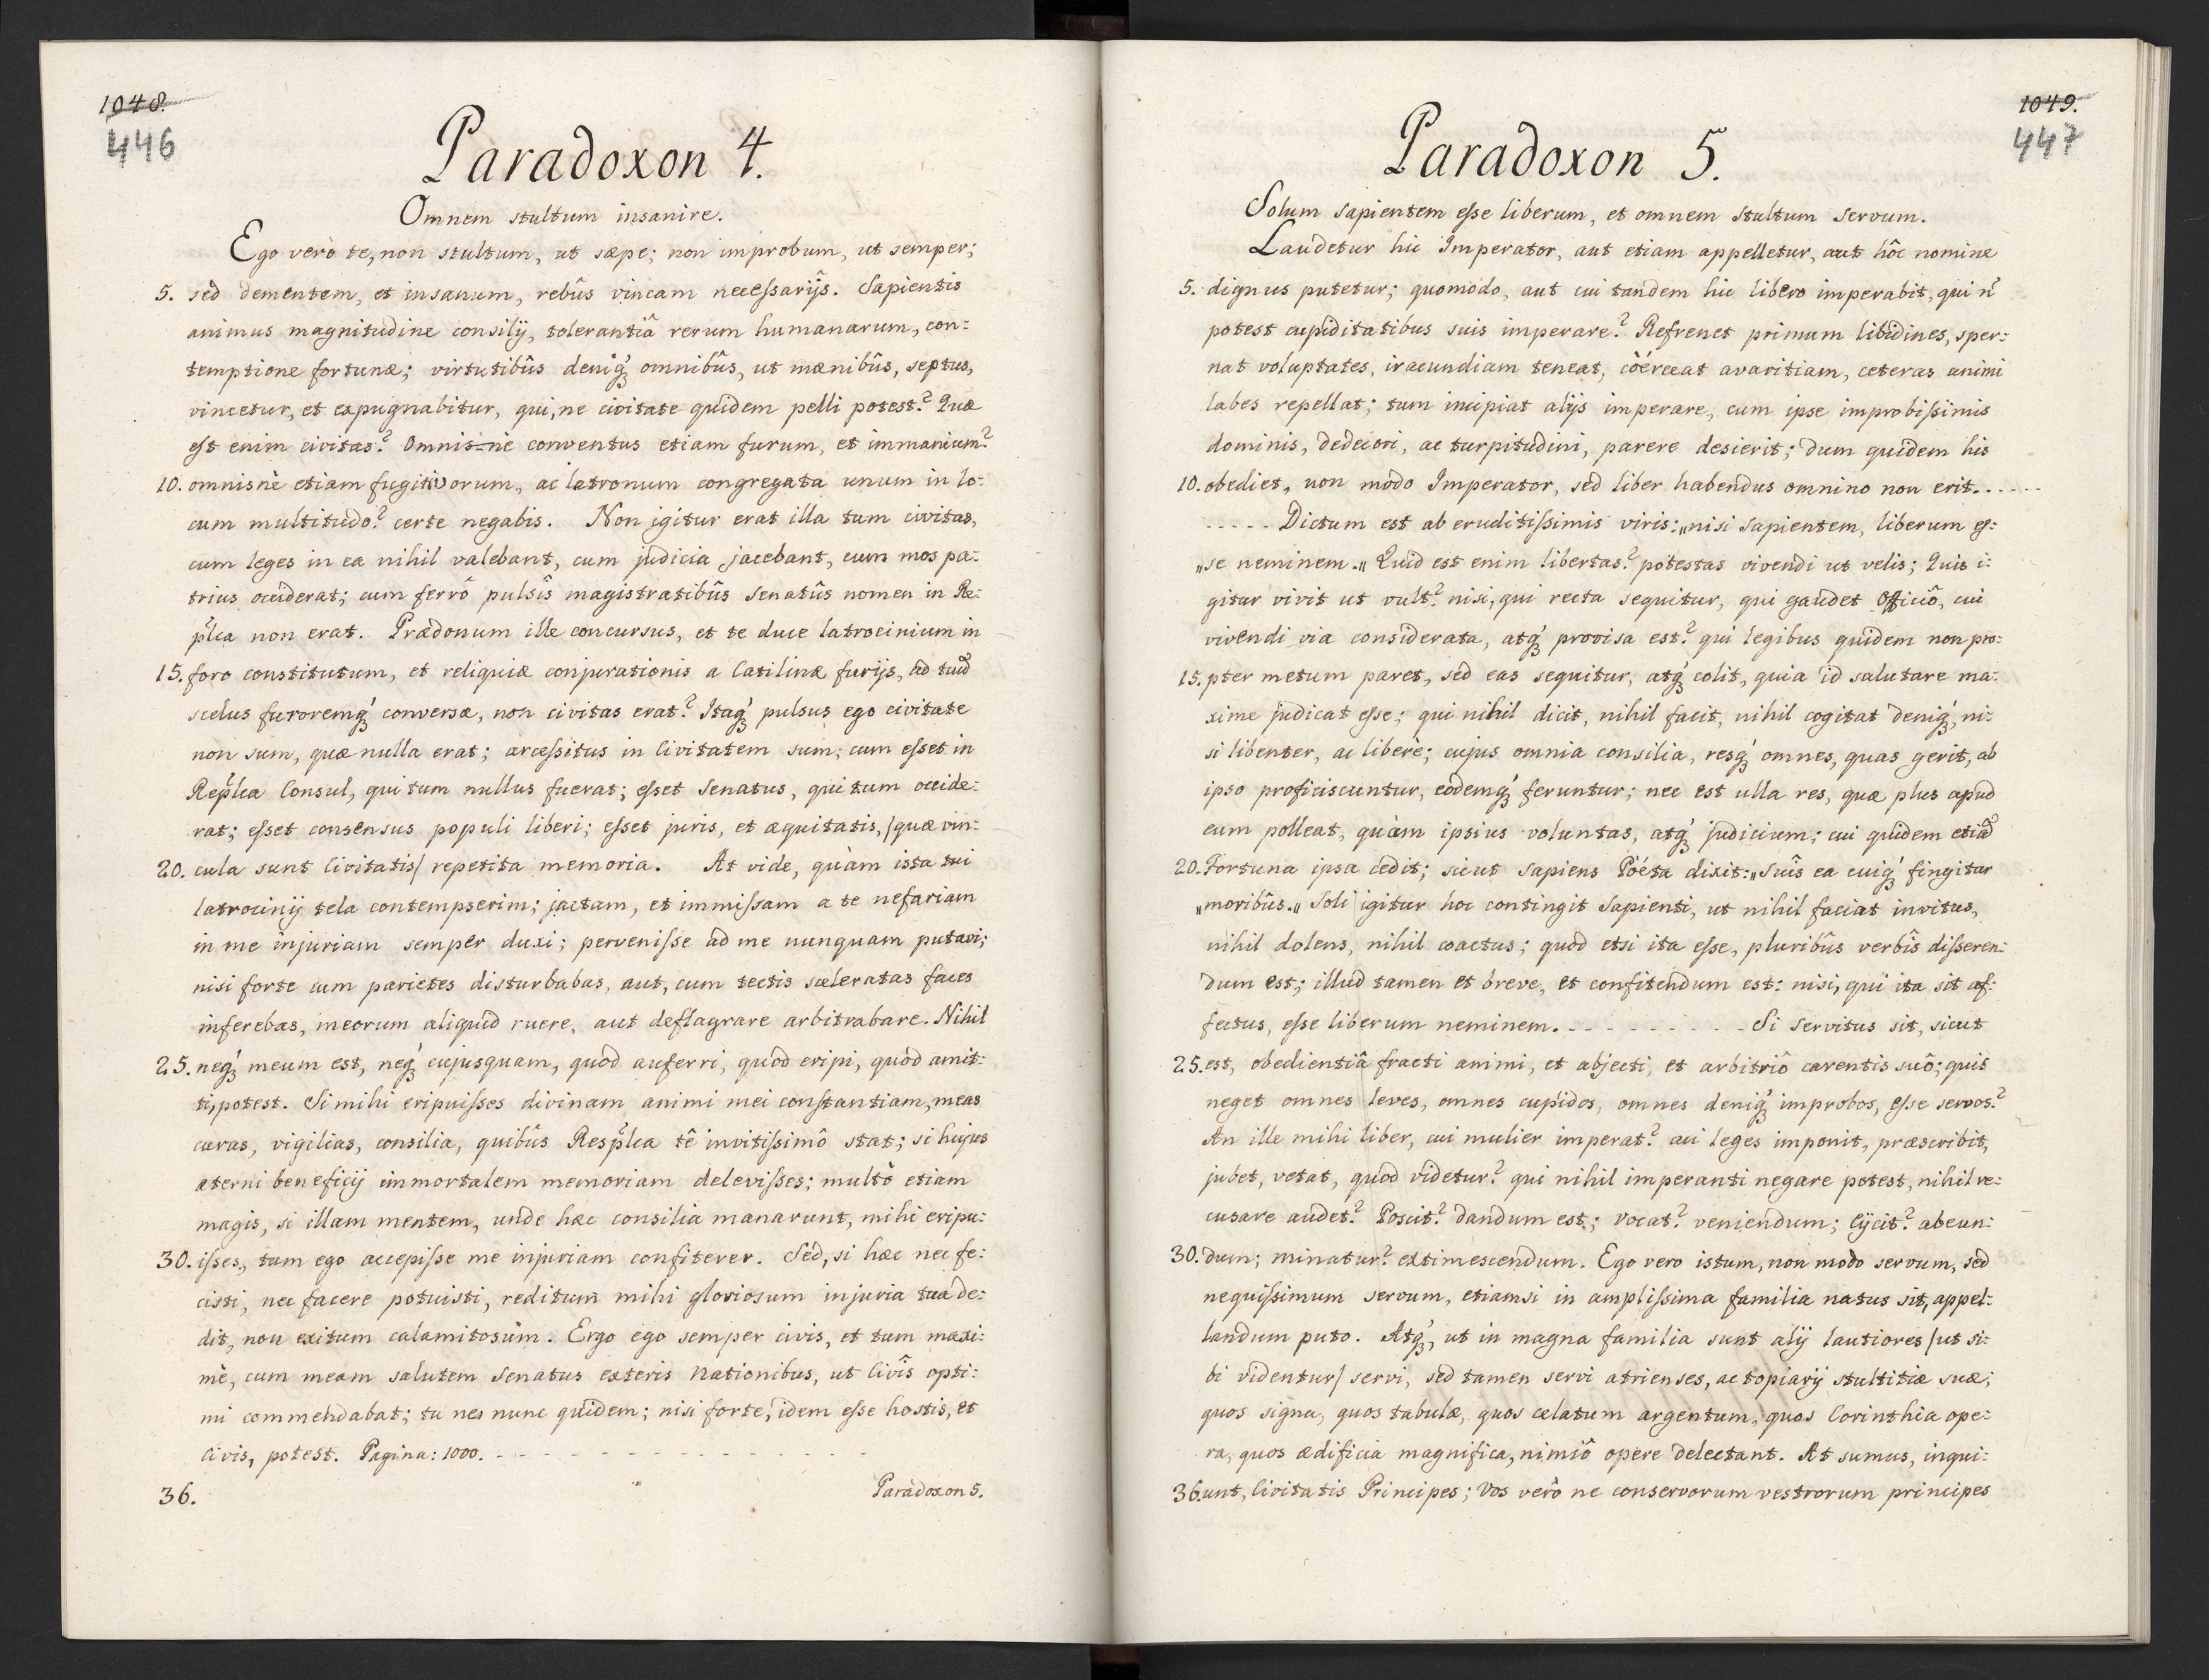 1048.
446
Paradoxon 4.
Omnem stultum insanire.
Ego verò te, non stultum, ut sæpe; non improbum, ut semper;
5. sed dementem, et insanum, rebûs vincam necessarijs. Sapientis
animus magnitudine consilij, tolerantiâ rerum humanarum, con:
temptione fortunæ; virtutibûs deniq́ omnibûs, ut mænibûs, septus,
vincetur, et expugnabitur, qui, ne civitate quidem pelli potest? Quæ
est enim civitas? Omnis=nè conventus etiam furum, et immanium?
10. omnisnè etiam fugitivorum, ac latronum congregata unum in lo:
cum multitudo? certe negabis. Non igitur erat illa tum civitas,
cum leges in ea nihil valebant, cum judicia jacebant, cum mos pa:
trius occiderat; cum ferrô pulsîs magistratibûs Senatûs nomen in Re:
pĺca non erat. Prædonum ille concursus, et te duce latrocinium in
15. foro constitutum, et reliquiæ conjurationis a Catilinæ furijs, ad tuū
scelus furoremq́ conversæ, non civitas erat? Itaq́ pulsus ego civitate
non sum, quæ nulla erat; arcessitus in Civitatem sum; cum esset in
Repĺca Consul, qui tum nullus fuerat; esset Senatus, qui tum occide:
rat; esset consensus populi liberi; esset juris, et æquitatis, /quæ vin:
20. cula sunt Civitatis/ repetita memoria. At vide, quàm ista tui
latrocinij tela contempserim; jactam, et immissam a te nefariam
in me injuriam semper duxi; pervenisse ad me nunquam putavi;
nisi forte cum parietes disturbabas, aut, cum tectis sceleratas faces
inferebas, meorum aliquid ruere, aut deflagrare arbitrabare. Nihil
25. neq́ meum est, neq́ cujusquam, quod auferri, quod eripi, quod amit:
ti, potest. Si mihi eripuisses divinam animi mei constantiam, meas
curas, vigilias, consilia, quibûs Respĺca tê invitissimô stat; si hujus
æterni beneficij immortalem memoriam delevisses; multò etiam
magis, si illam mentem, unde hæc consilia manarunt, mihi eripu:
30. isses, tum ego accepisse me injuriam confiterer. Sed, si hæc nec fe:
cisti, nec facere potuisti, reditum mihi gloriosum injuria tua de:
dit, non exitum calamitosum. Ergo ego semper civis, et tum maxi:
mè, cum meam salutem Senatus exteris Nationibus, ut Civîs opti:
mi commendabat; tu nes nunc quidem; nisi forte, idem esse hostis, et
Civis, potest. Pagina: 1000. - - - - - - - - - - - - - - - -
36.
Paradoxon 5.
1049.
447
Paradoxon 5.
Solum sapientem esse liberum, et omnem stultum servum.
Laudetur hic Imperator, aut etiam appelletur, aut hôc nomine
5. dignus putetur; quomodo, aut cui tandem hic libero imperabit, qui ñ
potest cupiditatibus suis imperare? Refrenet primum libidines, sper:
nat voluptates, iracundiam teneat, cöérceat avaritiam, ceteras animi
labes repellat; tum incipiat alijs imperare, cum ipse improbissimis
dominis, dedecori, ac turpitudini, parere desierit; dum quidem his
10. obediet, non modo Imperator, sed liber habendus omnino non erit. - - - - -
- - - - - Dictum est ab eruditissimis viris: „nisi sapientem, liberum es:
„se neminem.„ Quid est enim libertas? potestas vivendi ut velis; Quis i:
gitur vivit ut vult? nisi, qui recta sequitur, qui gaudet Officiô, cui
vivendi via considerata, atq́ provisa est? qui legibus quidem non pro:
15. pter metum paret, sed eas sequitur, atq́ colit, quia id salutare ma:
xime judicat esse; qui nihil dicit, nihil facit, nihil cogitat deniq́, ni:
si libenter, ac liberè; cujus omnia consilia, resq́ omnes, quas gerit, ab
ipso proficiscuntur, eodemq́ feruntur; nec est ulla res, quæ plus apud
eum polleat, quàm ipsius voluntas, atq́ judicium; cui quidem etiā
20. Fortuna ipsa cedit; sicut sapiens Pöéta dixit: „Suîs ea cuiq́ fingitur
„moribûs.„ Soli igitur hoc contingit sapienti, ut nihil faciat invitus,
nihil dolens, nihil coactus; quod etsi ita esse, pluribûs verbîs disseren:
dum est; illud tamen et breve, et confitendum est: nisi, qui ita sit af:
fectus, esse liberum neminem. - - - - - - - - - - Si servitus sit, sicut
25. est, obedientiâ fracti animi, et abjecti, et arbitriô carentis suô; quis
neget omnes leves, omnes cupidos, omnes deniq́ improbos, esse servos?
An ille mihi liber, cui mulier imperat? cui leges imponit, præscribit,
jubet, vetat, quod videtur? qui nihil imperanti negare potest, nihil re:
cusare audet? Poscit? dandum est; Vocat? veniendum; Ejicit? abeun:
30. dum; minatur? extimescendum. Ego vero istum, non modo servum, sed
nequissimum servum, etiamsi in amplissima familia natus sit, appel:
landum puto. Atq́, ut in magna familia sunt alij lautiores /ut si:
bi videntur/ servi, sed tamen servi atrienses, ac topiarij stultitiæ suæ;
quos signa, quos tabulæ, quos cælatum argentum, quos Corinthia ope:
ra, quos ædificia magnifica, nimiô opere delectant. At sumus, inqui:
36. unt, Civitatis Principes; Vos verò ne conservorum vestrorum principes